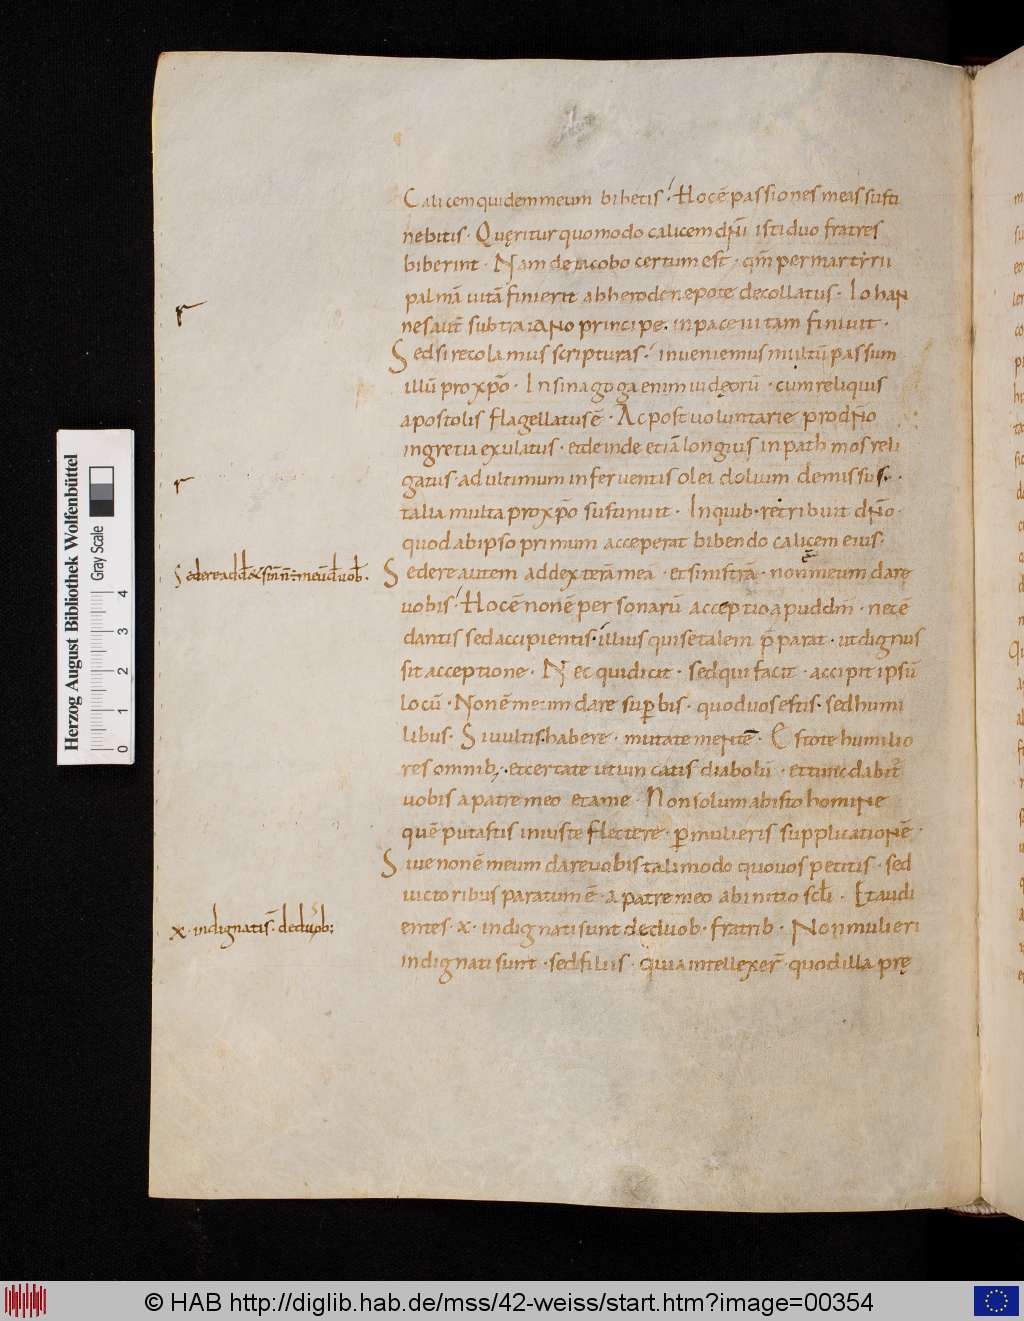 Calicem quidem meum bibetis. Hoc ē passiones meas susti
nebitis. Quęritur quomodo calicem dn̄i isti duo fratres
biberint. Nam de iacobo certum est. qm̄ per martyrii
palmā uitā finierit ab herode nepote decollatus. Iohan
nes aut̄ sub traiano principe. in pace uitam finiuit.
Sed si recolamus scripturas. inueniemus multū passum
illū pro xp̄o. In sinagoga enim iudęorū. cum reliquis
apostolis flagellatus ē. Ac post uoluntarie pro dn̄o
in gretia exulatus. et deinde etiā longius in pathmos reli
gatus. ad ultimum in feruentis olei dolium demissus.
talia multa pro xp̄o sustinuit. In quib. retribuit dn̄o.
quod ab ipso primum acceperat bibendo calicem eius.
Sedere ad d̄ & sin̄ n̄ ÷ meū d̄ uob.
Sedere autem ad dexterā meā. et sinistrā. non ÷ meum darę
uobis. Hoc ē non ē personarū acceptio apud dm̄. nec ē
dantis sed accipientis. illius qui se talem p̄parat. ut dignus
sit acceptione. Nec qui dicit. sed qui facit. accipit ipsū
locū. Non ē meum dare suꝑbis. quod uos estis. sed humi
libus. Si uultis habere. mutate mentē. Estote humilio
res omnib; et certate ut uincatis diabolū. et tunc dabit̄
uobis a patre meo et a me. Non solum ab isto homine
quē putastis iniuste flectere. ꝑ mulieris supplicationē.
Siue non ē meum dare uobis tali modo quo uos petitis. sed
uictoribus paratum ē. a patre meo ab initio scl̄i. Et audi
x. indignatis̄. de duob;
entes. x. indignati sunt de duob. fratrib. Non mulieri
indignati sunt. sed filiis. quia intellexer̄. quod illa prę
Herzog August Bibliothek Wolfenbüttel
Gray Scale
0 1 2 3 4
© HAB http://diglib.hab.de/mss/42-weiss/start.htm?image=00354